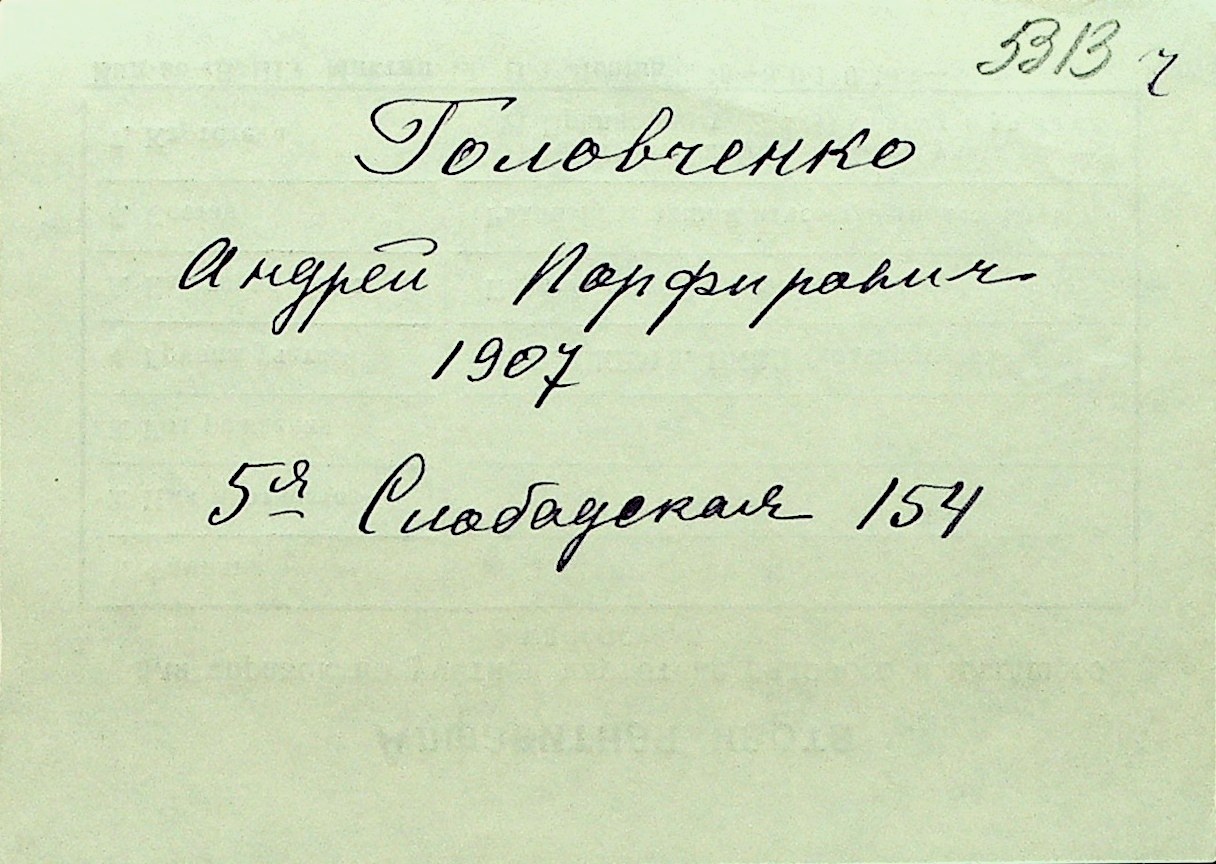 5313 ч
Головченко
Андрей Порфирович
1907
5я Слободская 154